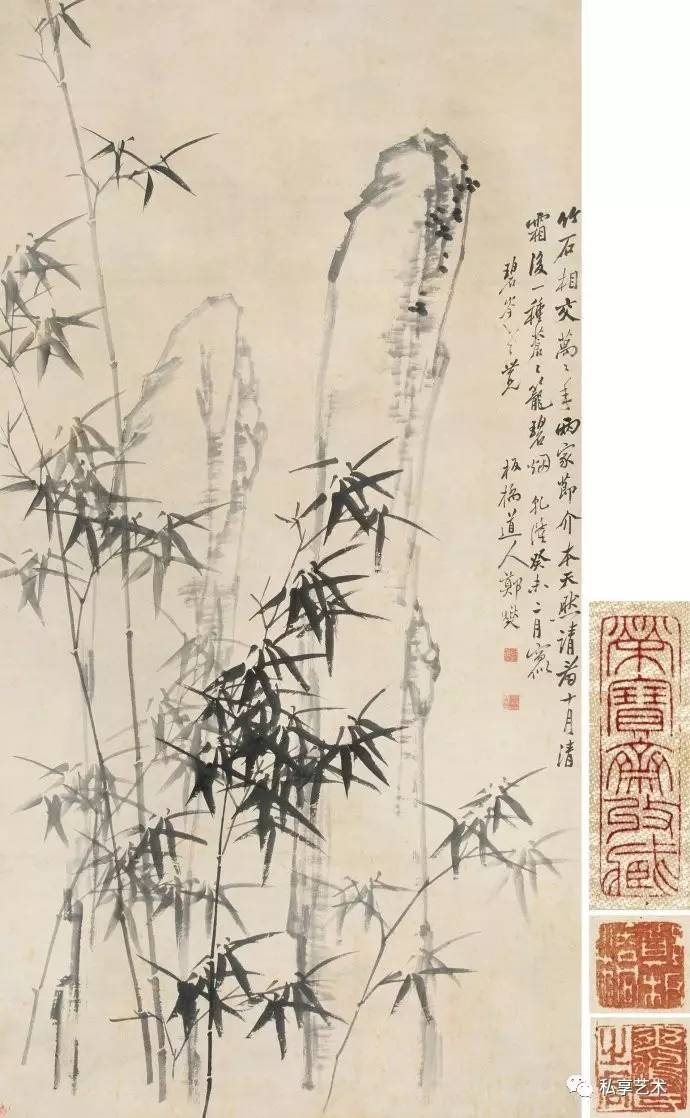 竹石相交萬〻年兩家節介本天然請看十月清
霜後一種蒼〻籠碧烟 乾隆癸未二月寫
碧岑 板橋道人鄭燮
榮寶齋收藏
私享艺术